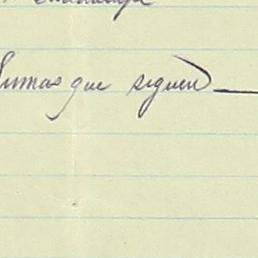 Sumas que siguen